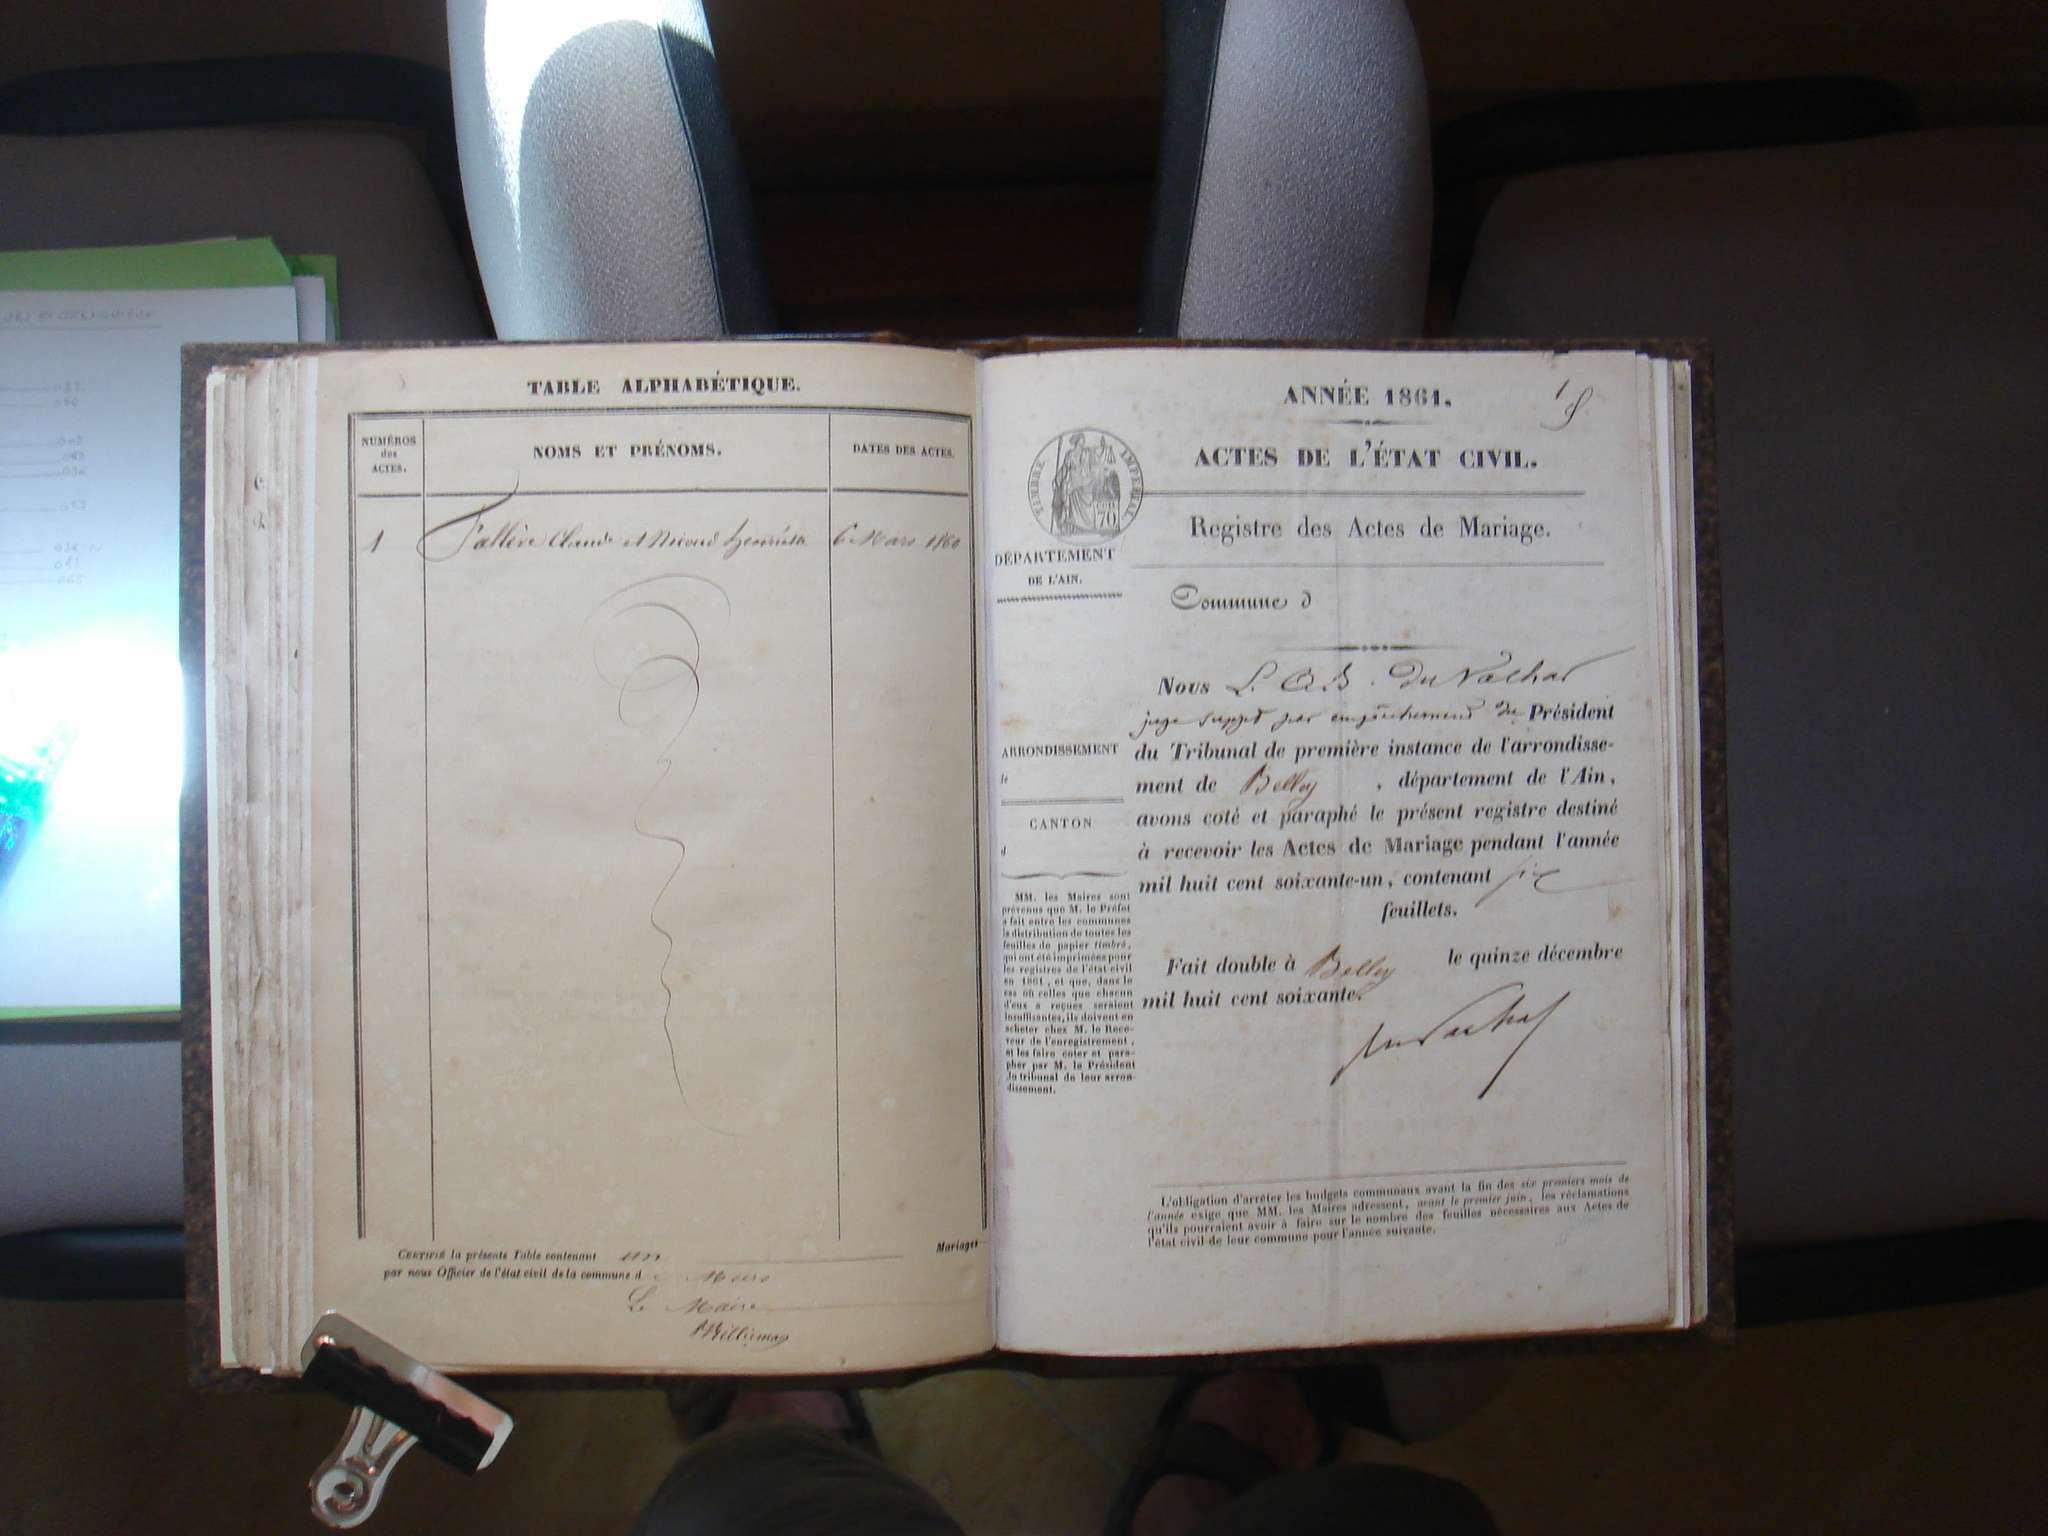 TABLE ALPHABÉTIQUE.
NUMÉROS
des
ACTES.
NOMS ET PRÉNOMS.
DATES DES ACTES.
1
Claude et 6 Mars 1860
CERTIFIÉ la présente Table contenant un Mariages
par nous Officier de l'état civil de la commune d
Le Maire
ANNÉE 1861.
ACTES DE L'ÉTAT CIVIL.
Registre des Actes de Mariage.
TIMBRE IMPÉRIAL
70
DÉPARTEMENT
DE L'AIN.
Commune d
ARRONDISSEMENT
de
CANTON
d
MM. les Maires sont
prévenus que M. le Préfet
a fait entre les communes
la distribution de toutes les
feuilles de papier timbré,
qui ont été imprimées pour
les registres de l'état civil
en 1861, et que, dans le
cas où celles que chacun
d'eux a reçues seraient
insuffisantes, ils doivent en
acheter chez M. le Rece-
veur de l'enregistrement,
et les faire coter et para-
pher par M. le Président
du tribunal de leur arron-
dissement.
Nous
juge suppt par empêchement du Président
du Tribunal de première instance de l'arrondisse-
ment de Belley, département de l'Ain,
avons coté et paraphé le présent registre destiné
à recevoir les Actes de Mariage pendant l'année
mil huit cent soixante-un, contenant six
feuillets.
Fait double à Belley le quinze décembre
mil huit cent soixante.
L'obligation d'arrêter les budgets communaux avant la fin des six premiers mois de
l'année exige que MM. les Maires adressent, avant le premier juin, les réclamations
qu'ils pourraient avoir à faire sur le nombre des feuilles nécessaires aux Actes de
l'état civil de leur commune pour l'année suivante.